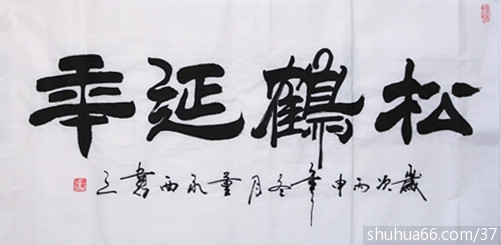 松鹤延年
歲次丙申年冬月董永西書之
shuhua66.com/37